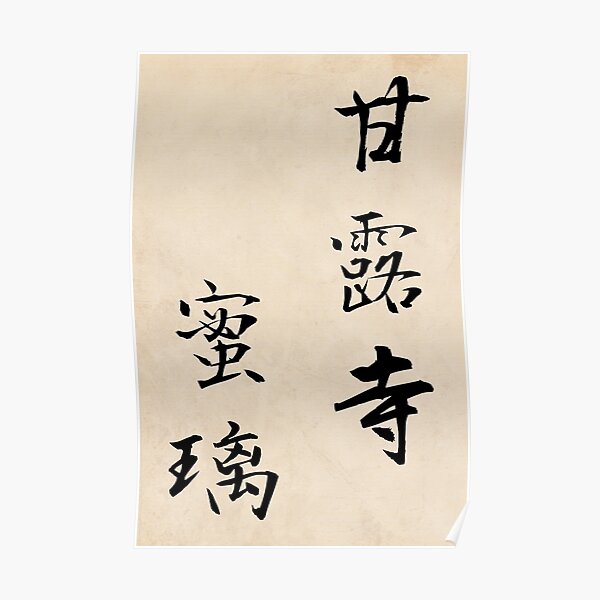 甘露寺
蜜璃